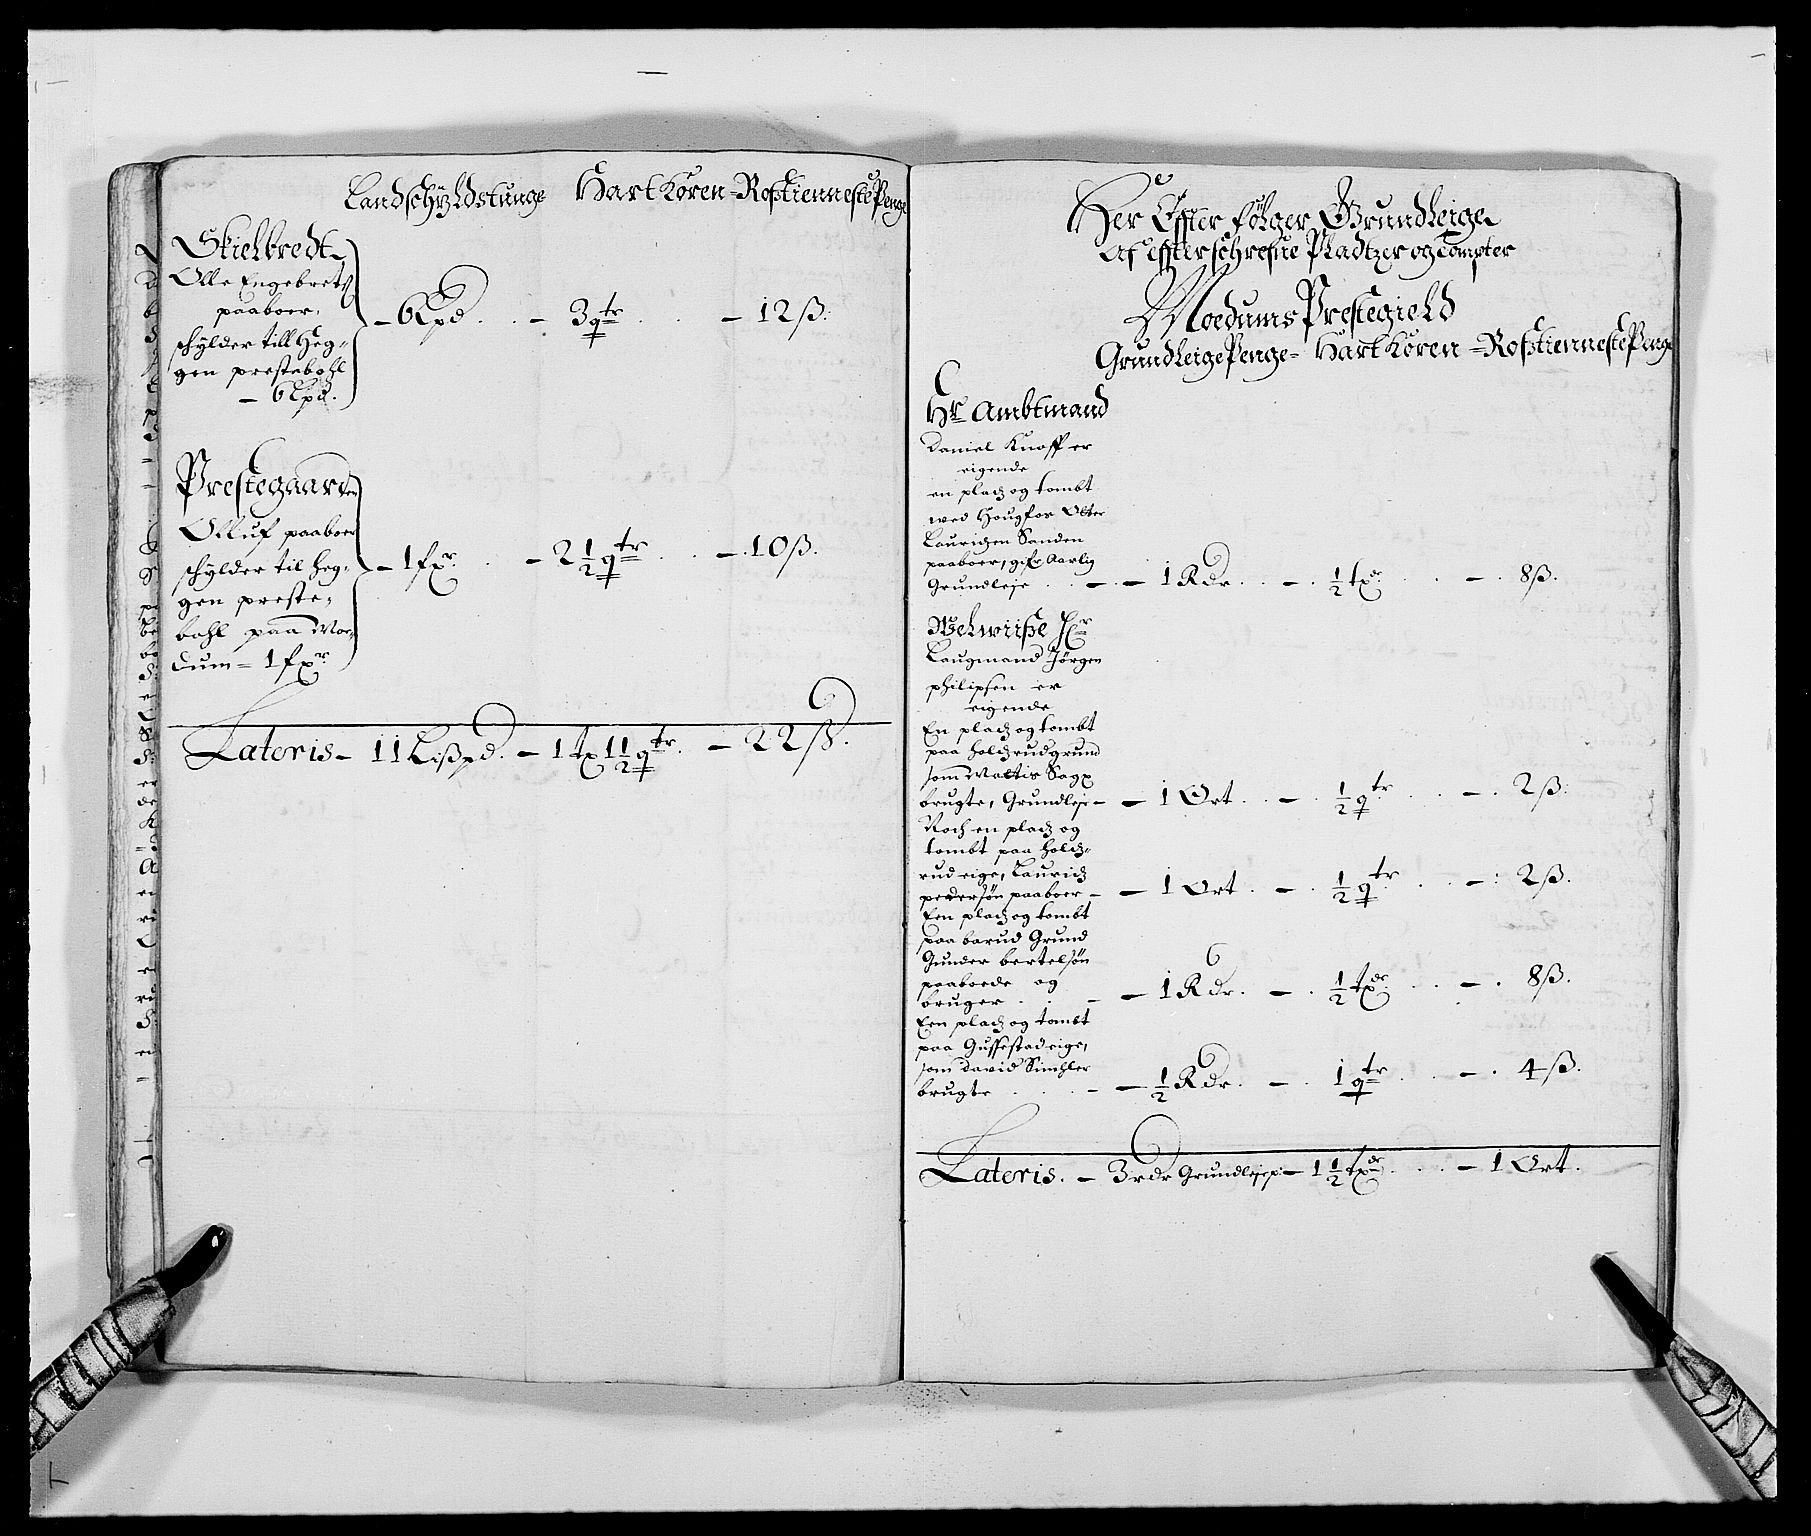 Landschyldstunge Hart Koren - Rostienneste Penge
Skielbredt
Olle Engebretz
paaboer,
schylder till Heg-
gen prestebohl
- 6 Lpd.
- 6 Lpd. . . - 3 qtr . . - 12 ß.
Prestegaarden
Olluf paaboer
schylder til Heg-
gen preste-
bohl paa Moe-
dum - 1 fxr
- 1 fxr. . . - 2 1/2 qtr . . - 10 ß.
Lateris - 11 Lißpd. - 1 tx 1 1/2 qtr. - 22 ß.
Her Effter følger Grundleige
af effterschrefne Pladtzer og tompter
Moedums Prestegield
Grundleige Penge - Hart Koren - Rostienneste Penge
Hr Ambtmand
Daniel Knoff er
eigende
en pladz og tombt
wed Hougfos Olter
Lauridzen Sanden
paaboer, gifr Aarlig
Grundleje . . - - 1 Rdr. . - . 1/2 txr . . - . 8 ß.
Welwiiße Hr
Laugmand Jörgen
philipsen er
eigende
En pladz og tombt
paa Holdzrud grund
som Maltis Sagx
brugte, Grundleje - - 1 Ort . . - . 1/2 qtr . . - . 2 ß.
Noch en pladz og
tombt paa Holdz-
rud eige, Lauridz
pedersön paaboer - - 1 Ort . - . 1/2 qtr . . - : 2 ß.
Een pladz og tombt
paa barud Grund
Gunder bertelsön
paaboede og
bruger . . - - 1 Rdr. - . 1/2 txdr . . - . 8 ß.
Een pladz og tombt
paa Guffestad eige,
som David Simhler
brugte . . . - - 1/2 Rdr. - . 1 qtr . . - . 4 ß.
Lateris. - 3 rdr Grundlejep - 1 1/2 txdr . . . - 1 Ort.